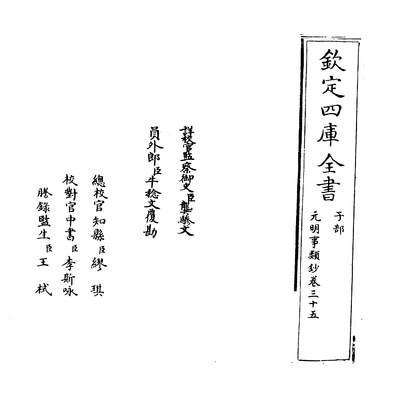 欽定四庫全書
子部
元明事類鈔卷三十五
詳校官監察御史臣龔驂文
員外郎臣牛稔文覆勘
總校官知縣臣繆琪
校對官中書臣李斯咏
謄錄監生臣王栻